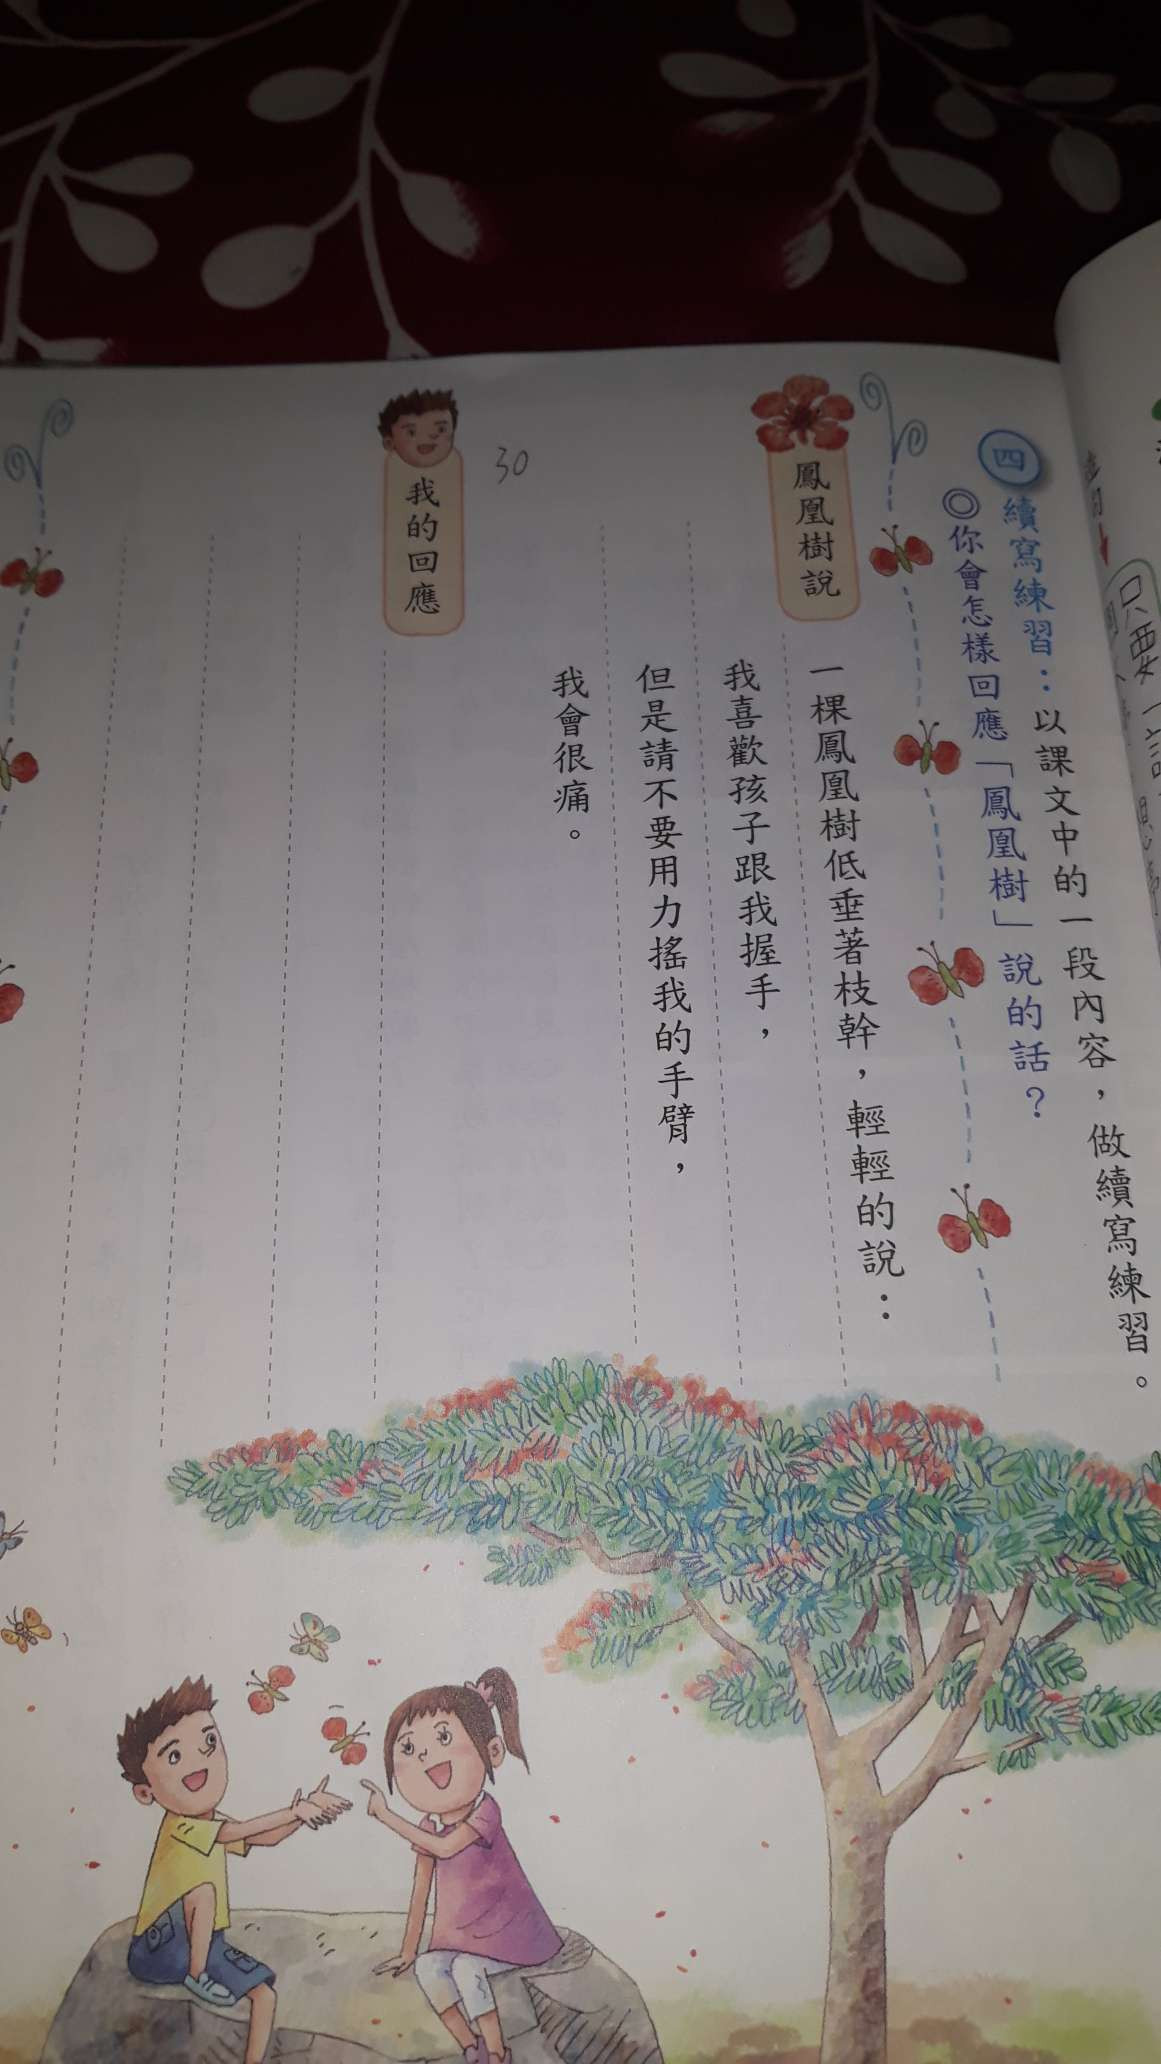 只要
四 續寫練習：以課文中的一段內容，做續寫練習。
◎你會怎樣回應「鳳凰樹」說的話？
鳳凰樹說
一棵鳳凰樹低垂著枝幹，輕輕的說：
我喜歡孩子跟我握手，
但是請不要用力搖我的手臂，
我會很痛。
30
我的回應